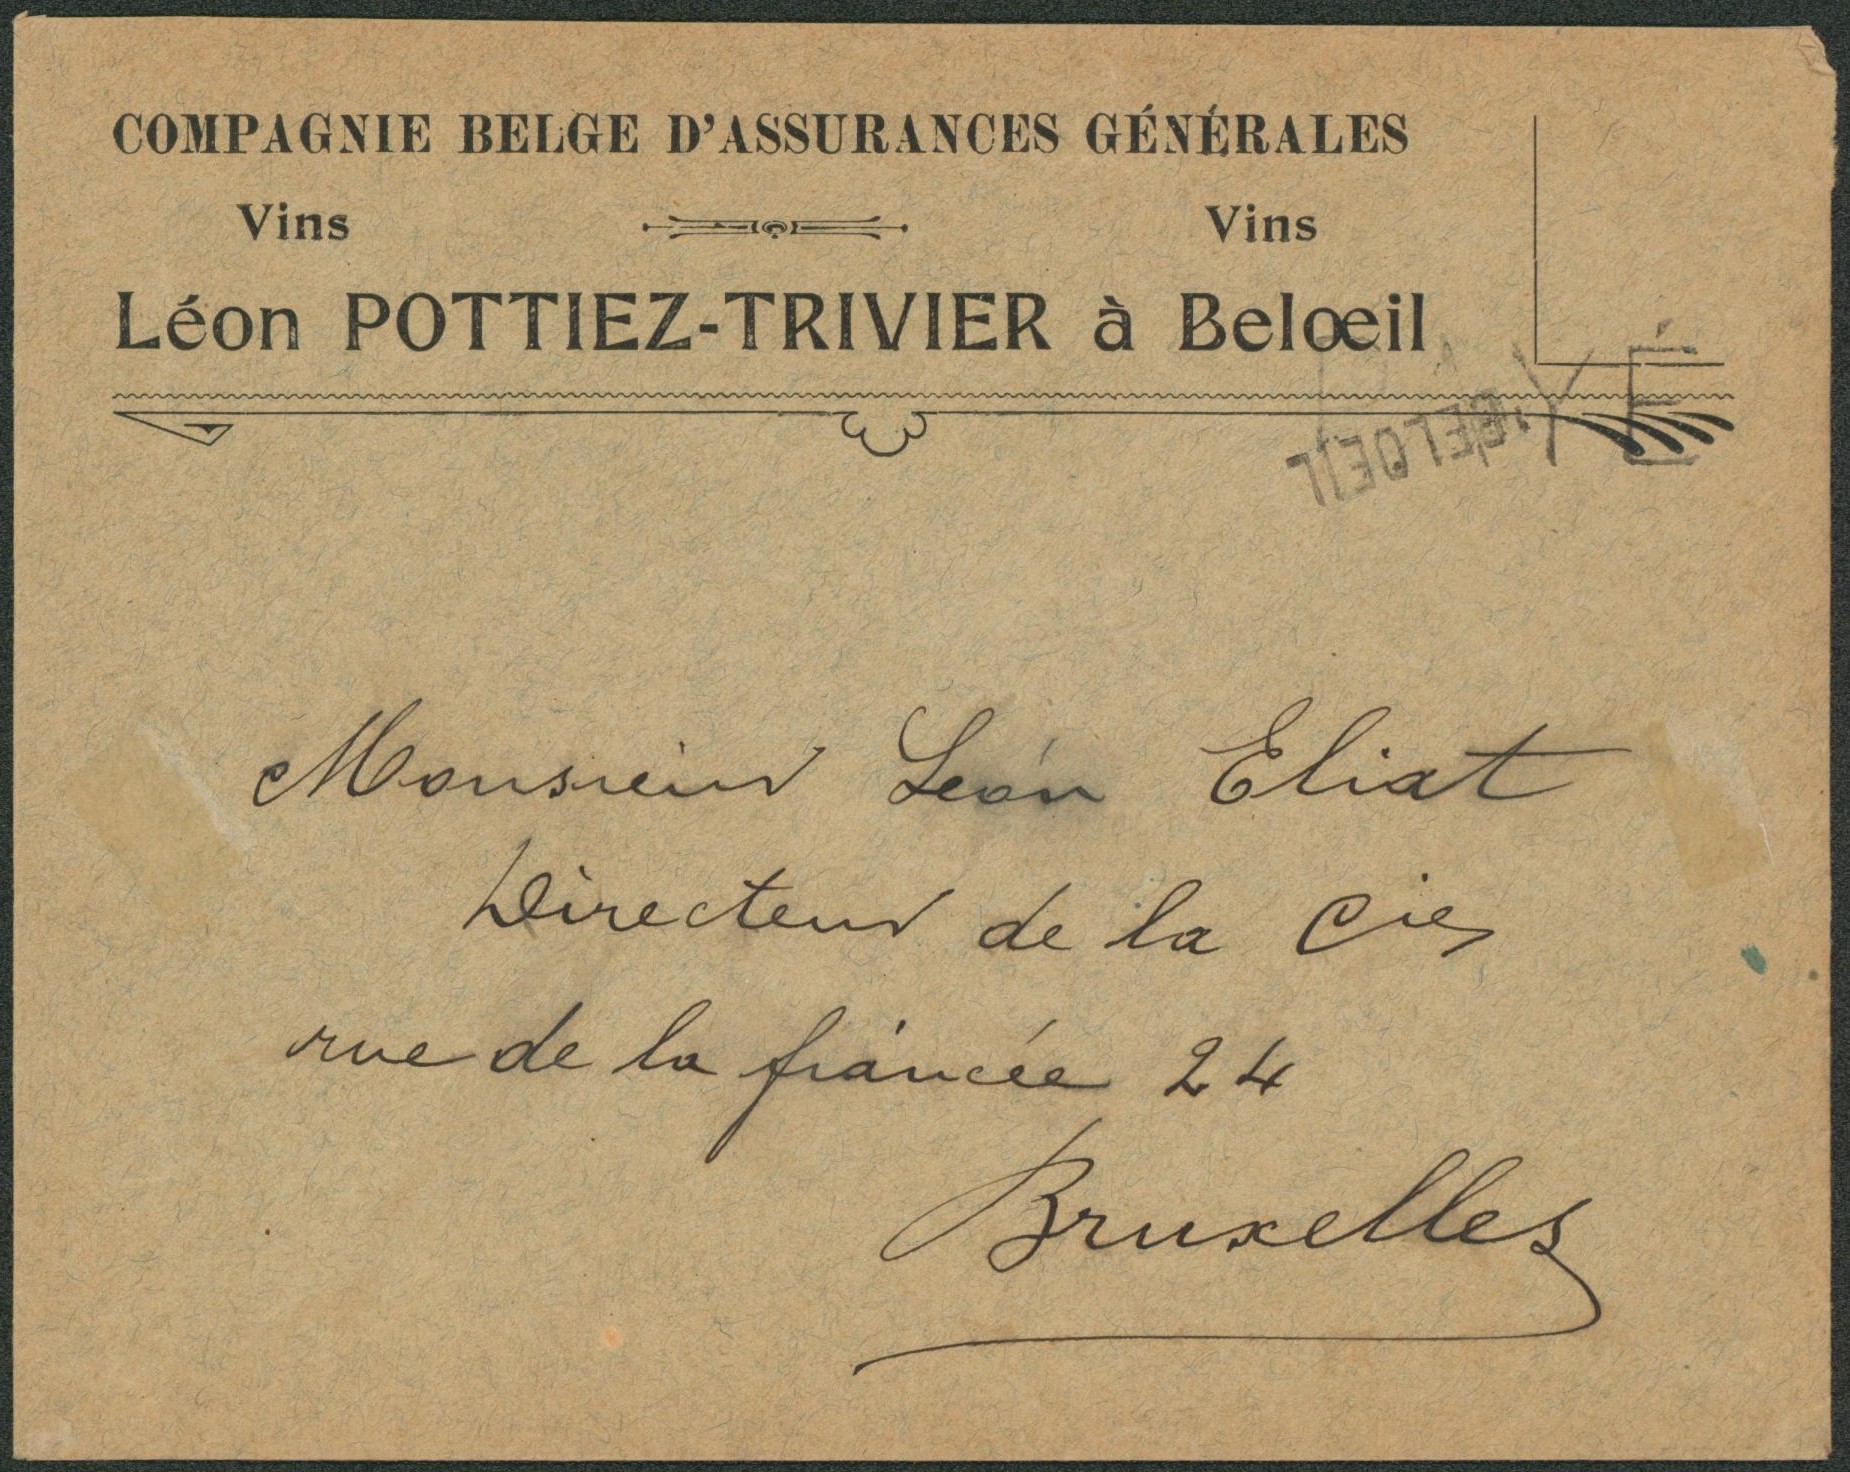 COMPAGNIE BELGE D'ASSURANCES GÉNÉRALES
Vins Vins
Léon POTTIEZ-TRIVIER à Belœil
BELOEIL
Monsieur Léon Eliat
Directeur de la Cie
rue de la fiancée 24
Bruxelles